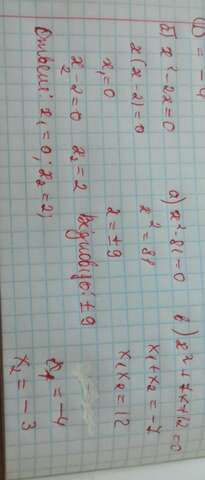 = -4
Б) x²-2x=0
x(x-2)=0
x₁=0
x-2=0 x₂=2
Ответ: x₁=0; x₂=2;
а) x²-81=0
x²=81
x=±9
±9
в) x²+7x+12=0
x₁+x₂=-7
x₁x₂=12
x₁=-4
x₂=-3